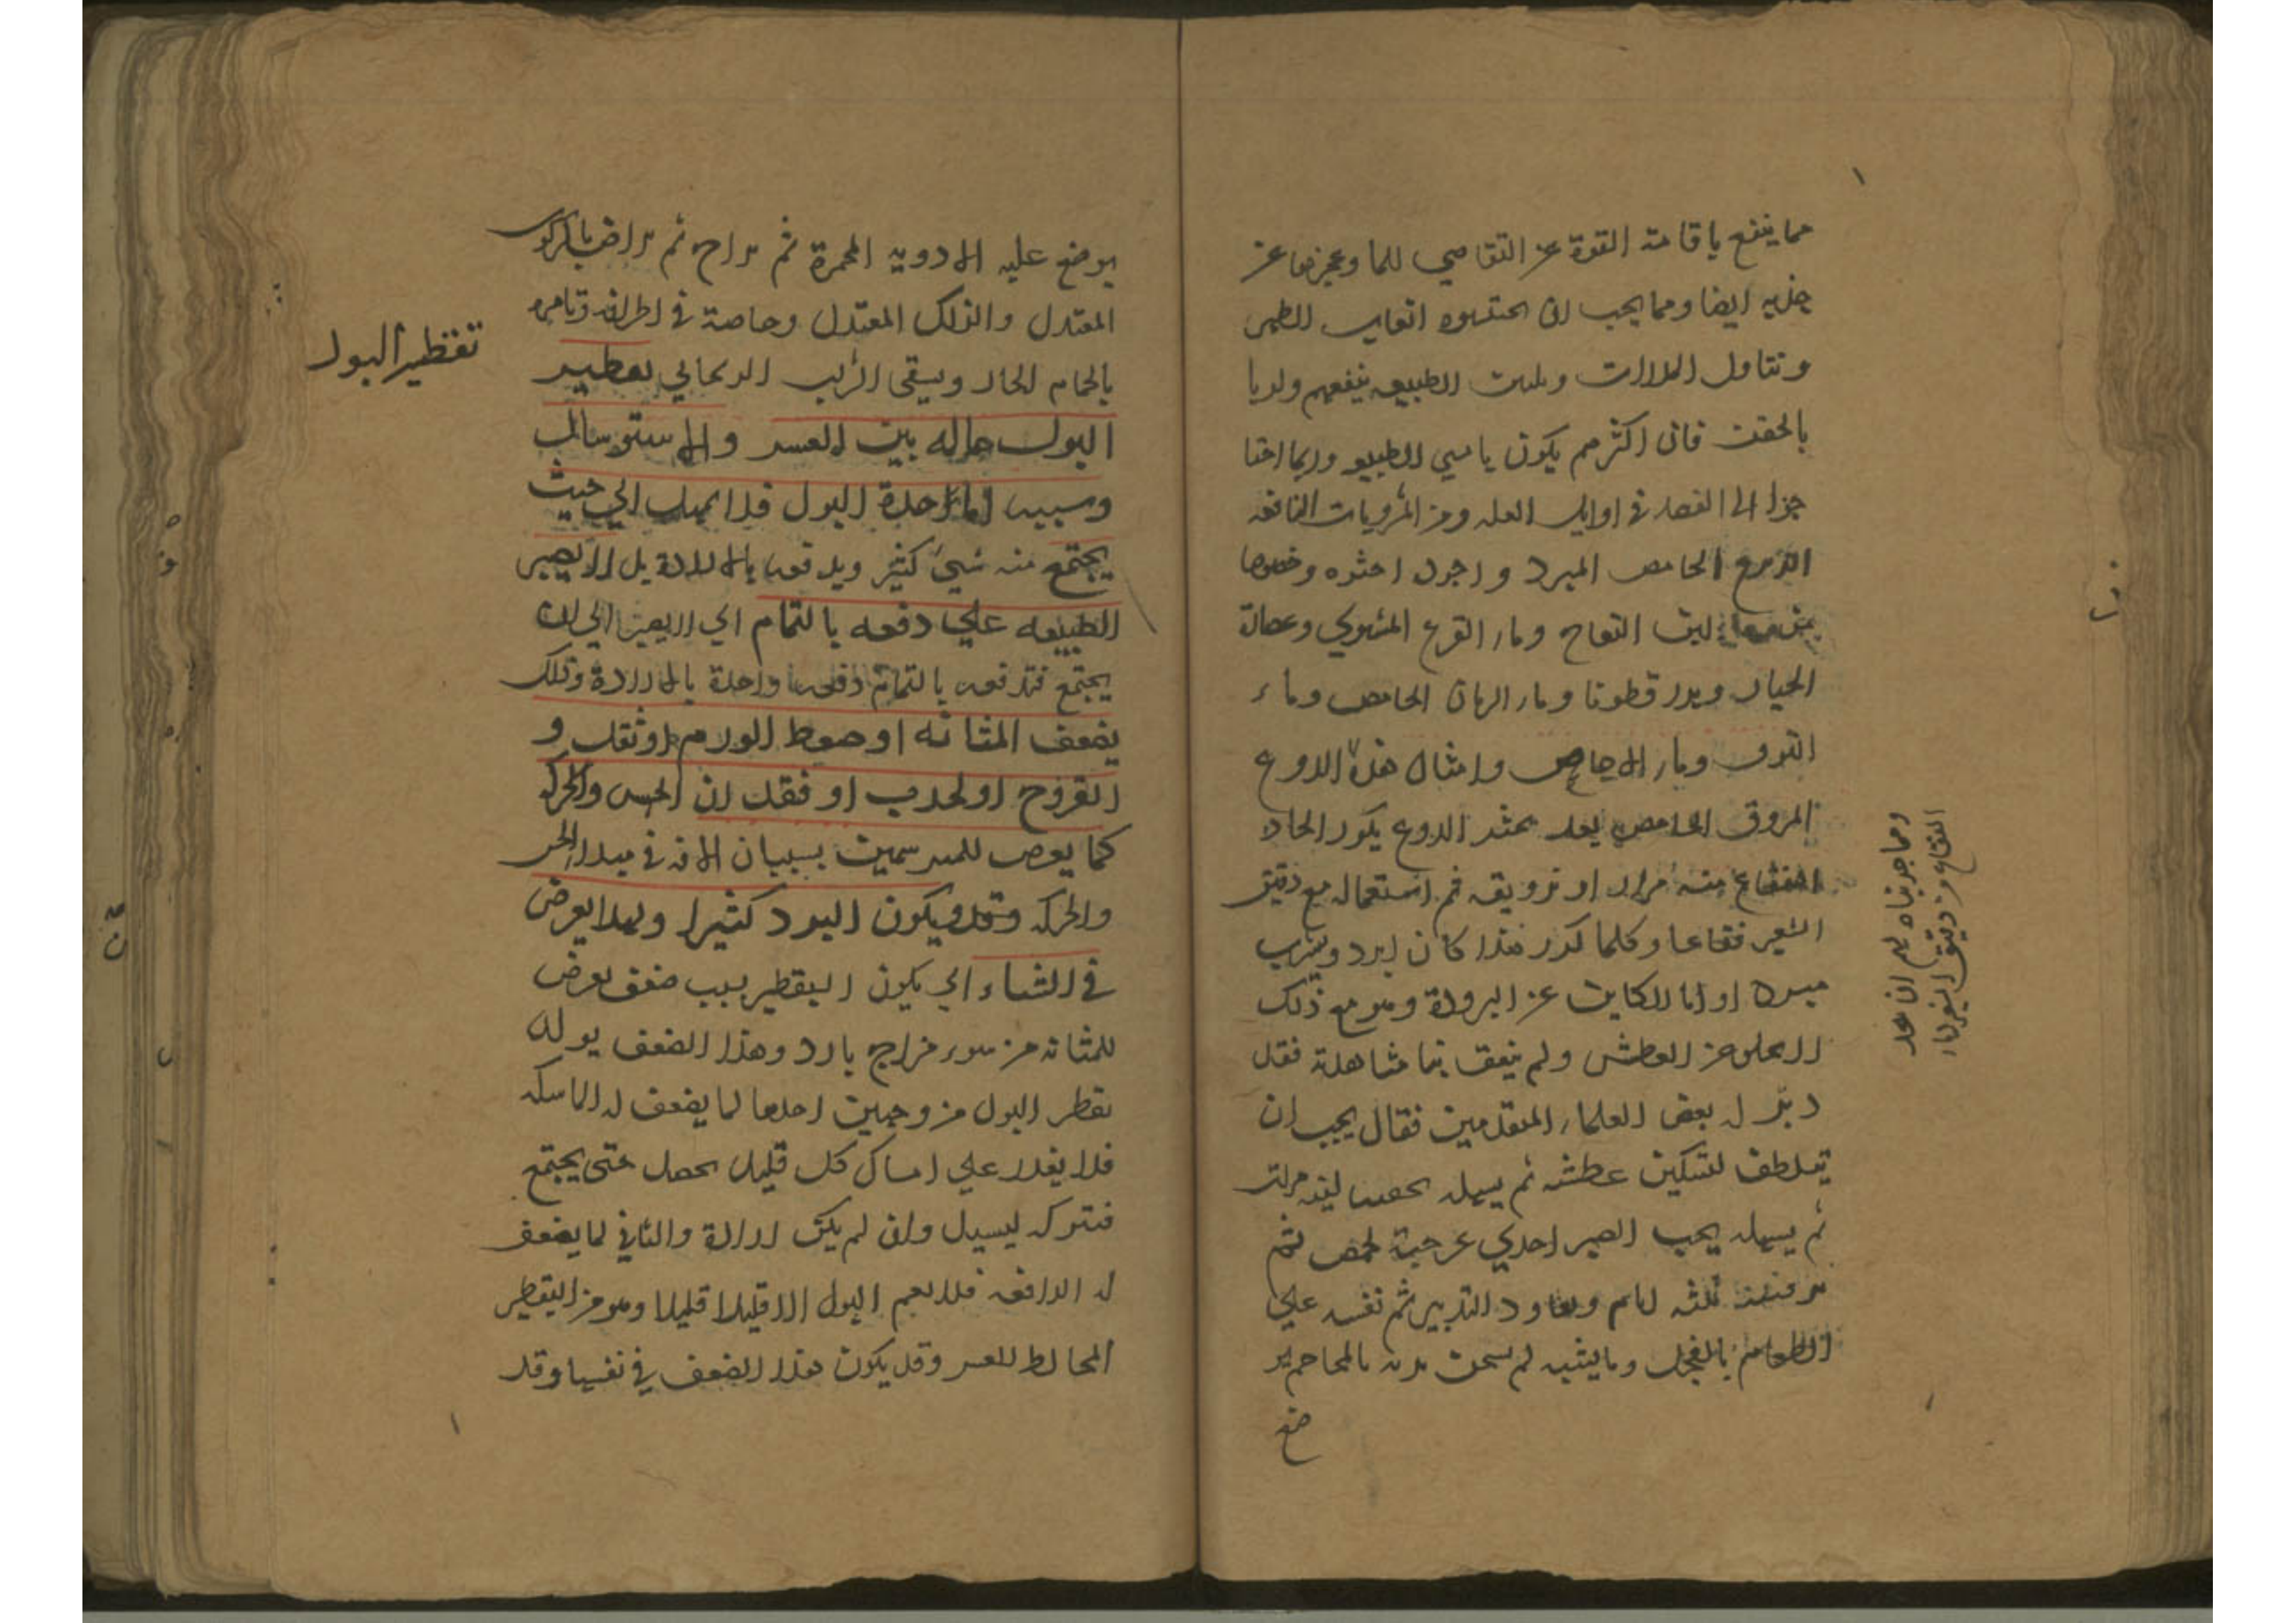 مما ينفع باقامة القوة عن التقاضي للما وعجزها عن
جذبه ايضا ومما يجب ان يجتنبوه اتعاب الظهر
وتناول المدرات وتليين الطبيعه ينفعهم ولو با
بالحقن فان اكثرهم يكون يابسي الطبيعه وربما احتا
جوا الى الفصد في اوايل العله ومن المشروبات النافعه
الدوغ الحامض المبرد واجود اخثره وخصوصا
لبن النعاج وماء القرع المشوي وعصارة
الخيار وبزر قطونا وماء الرمان الحامض وماء
التوت وماء الاجاص وامثال هذه الدوغ
المروق الحامض بعد الدوغ يكون الحاد
منه مرارا او ترويقه ثم استعماله مع دقيق
الشعير فقاعا وكلما كرر هذا كان ابرد ويشرب
مبردا اما للكاين عن البرودة وهو مع ذلك
لا يخلو عن العطش ولم يتفق لنا مشاهدة فقد
دبر له بعض العلماء المتقدمين فقال يجب ان
يتلطف لتسكين عطشه ثم يسهله بحقنه لينه مرات
ثم يسهله بحب الصبر احدي عشر حبة كحمص ثم
يرفهه ثلثه ايام ويعاود التدبير ثم تقيه علي
الطعام بالفجل وما يشبهه ثم يسخن بدنه بالمحاجم
ضع
ومما جربناه لهم ان
الفقاع من دقيق الشعير
يوضع عليه الادويه المحمرة ثم يراح ثم يراض بالركوب
المعتدل والدلك المعتدل وخاصة في اطرافه وتامره
بالحمام الحار ويسقى الشراب الريحاني تقطير
البول حاله بين العسر والاسترسال
وسببه اما حدة البول فلا يمهل الي حيث
يجتمع منه شيء كثير ويدفعه بالارادة بل لا يصبر
الطبيعه علي دفعه بالتمام اي لا يصبر الي ان
يجتمع فتدفعه بالتمام دفعه واحدة بالارادة وذلك
بضعف المثانه او ضغط الورم او ثقل و
القروح او لجرب او فقدان الحس والحركه
كما يعرض للمبرسمين بسيبان الافه في مبدا الحس
والحركه وقد يكون البرد كثيرا ولهذا يعرض
في الشتاء اي يكون التقطير بسبب ضعف يعرض
للمثانه من سوء مزاج بارد وهذا الضعف يولد
تقطر البول من وجهين احدها لما يضعف له الماسكه
فلا يقدر علي امساك كل قليل يحصل حتي يجتمع
فتتركه ليسيل وان لم يكن ارادة والثاني لما يضعف
له الدافعه فلا يعصر البول الا قليلا قليلا وهو من التقطير
المخالط للعسر وقد يكون هذا الضعف في نفسها وقد
تقطير البول